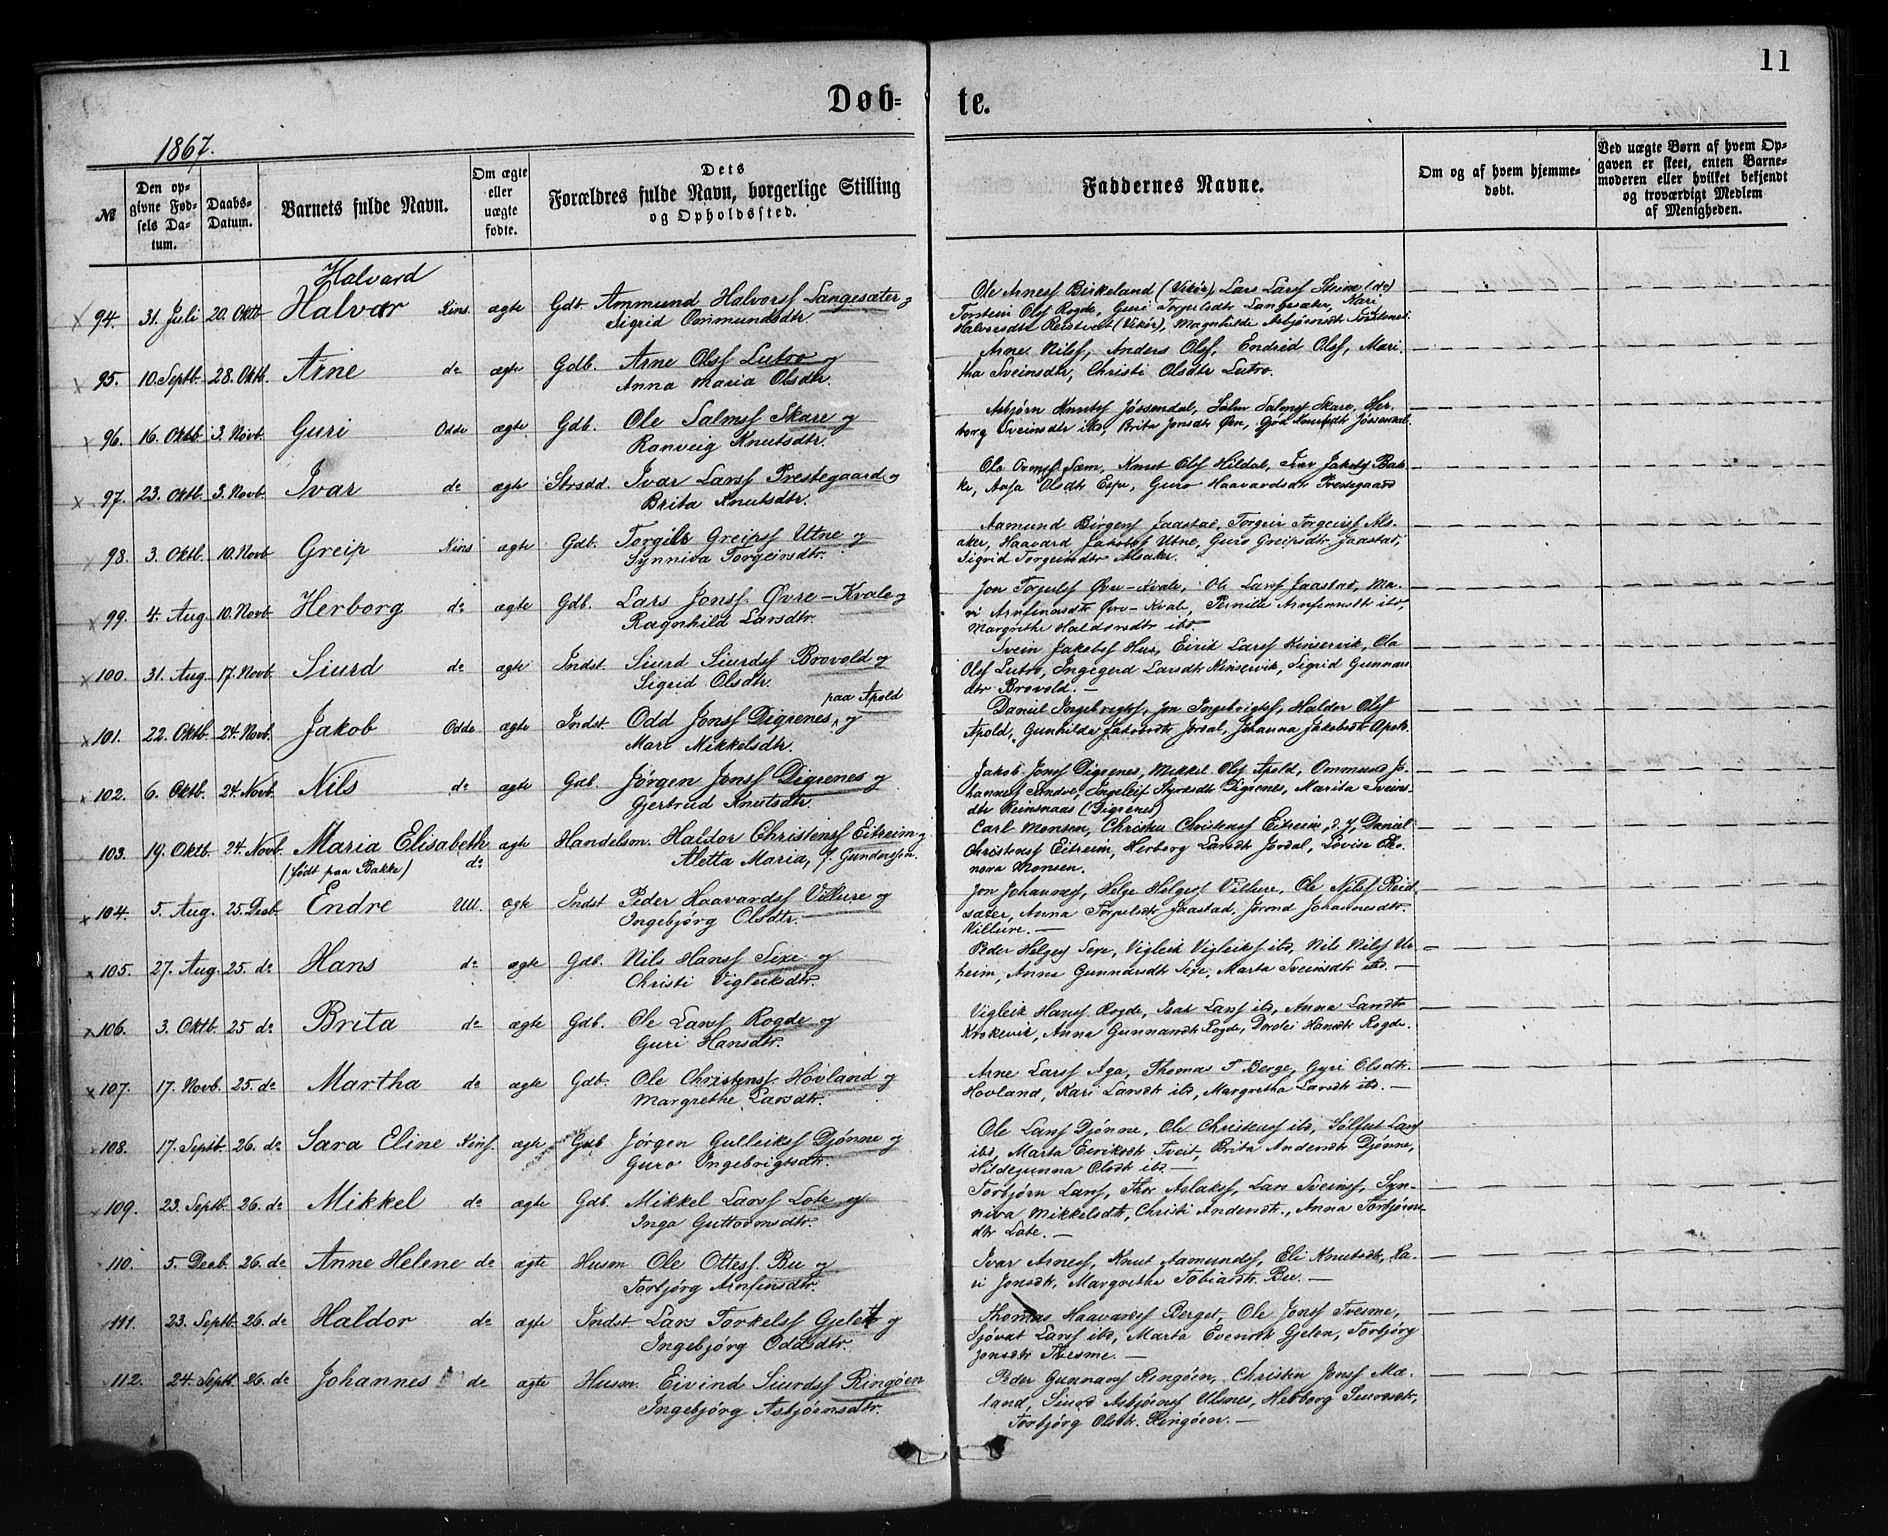 11
Døb- te.
1867.
№
Den opgivne Fødsels Datum.
Daabs-Datum.
Barnets fulde Navn.
Om ægte eller uægte fødte.
Dets Forældres fulde Navn, borgerlige Stilling og Opholdssted.
Faddernes Navne.
Om og af hvem hjemmedøbt.
Ved uægte Børn af hvem Opgaven er skeet, enten Barnemoderen eller hvilket bekjendt og troværdigt Medlem af Menigheden.
Halvard
94. 31. Juli 20. Oktb. Halvor Kins. ægte Gdb. Ammund Halvorsf Langesæter og
Sigrid Ommundsdtr.
Ole Arnesf Birkeland (Vikör), Lars Larsf Steine (do)
Torstein Olsf Rogde, Guri Torfinsdt Langesæter, Mari
Halvorsdtr (Vikör), Magnhilde Asbjörnsdt
95. 10. Septb. 28. Oktb. Arne do ægte Gdb. Arne Olsf Lutro og
Anna Maria Olsdtr.
Arne Nilsf, Anders Olsf, Endrid Olsf, Mari-
tha Sveinsdtr, Christi Olsdtr Lutro.
96. 16. Oktb. 3. Novb. Guri Odde ægte Gdb. Ole Salmsf Skare og
Ranveig Knutsdtr.
Asbjörn Knutsf Jössendal, Salm Salmsf Skare, Her-
borg Sveinsdtr ibd, Brita Jonsdtr Öen, Gjöd Knutsdt Jössendal.
97. 23. Oktb. 3. Novb. Ivar do ægte Strsdd. Ivar Larsf Prestegaard og
Brita Knutsdtr.
Ole Ormsf Sæm, Knut Olsf Hildal, Ivar Jakobsf Bak-
ke, Aasa Olsdtr Espe, Guro Haavardsdt Prestegaard
98. 3. Oktb. 10. Novb. Greip Kins ægte Gdb. Torgils Greipsf Utne og
Synniva Torgeirsdtr.
Aamund Birgersf Jaastad, Torgeir Torgeirsf Als-
aker, Haavard Jakobsf Utne, Guro Greipsdtr Jaastad,
Sigrid Torgeirsdtr Alsaker.
99. 4. Aug. 10. Novb. Herborg do ægte Gdb. Lars Jonsf Øvre-Kvale og
Ragnhild Larsdtr.
Jon Øvre-Kvale, Ole Larsf Jaastad, Ma-
ri Arnfinnsdtr Øvre-Kvale, Pernille Arnfinnsdt ibd,
Margrethe Haldorsdtr ibd.
100. 31. Aug. 17. Novb. Siurd do ægte Indst. Siurd Siurdsf Brovold og
Sigrid Olsdtr.
Svein Jakobsf Hus, Eirik Larsf Kinservik, Ola
Olsf Lutro, Ingegerd Larsdt Kinservik, Sigrid Gunnars-
dtr Brovold. —
paa Apold
101. 22. Oktb. 24. Novb. Jakob Odde ægte Indst. Odd Jonsf Digrenes, og
Mari Mikkelsdtr.
Daniel Ingebrigtsf, Jon Ingebrigtsf, Haldor Olsf
Apold, Gunhilde Jakobsdt Jordal, Johanna Jakobsdt Apold.
102. 6. Oktb. 24. Novb. Nils do ægte Gdb. Jørgen Jonsf Digrenes og
Gjertrud Knutsdtr.
Jakob Jonsf Digrenes, Mikkel Olsf Apold, Ommund Jo-
hannesf Sandve, Ingeleif Digrenes, Marita Sveins-
dtr Reinsnaas (Digrenes)
103. 19. Oktb. 24. Novb. Maria Elisabeth ægte Handelsm. Haldor Christensf Eitreim og
(født paa Bakke) do Aletta Maria, f. Gundersen.
Carl Monsen, Christen Christensf Eitreim, d. y, Daniel
Christensf Eitreim, Herborg Larsdt Jordal, Lovise Eleo-
nora Monsen.
104. 5. Aug. 25. Decb. Endre Ull. ægte Indst Peder Haavardsf Villure og
Ingebjörg Olsdtr.
Jon Johannesf, Helge Helgesf Villure, Ole Nilsf Reid-
sæter, Anna Jaastad, Jorond Johannesdtr.
Villure. —
105. 27. Aug. 25. do Hans do ægte Gdb. Nils Hansf Sexe og
Christi Vigleiksdtr.
Peder Helgesf Sexe, Vigleik Vigleiksf ibd, Nils Nilsf
heim, Anna Gunnarsdt Sexe, Marta Sveinsdtr ibd. —
106. 3. Oktb. 25 do Brita do ægte Gdb. Ole Larsf Rogde og
Guri Hansdtr.
Vigleik Hansf Rogde, Isak Larsf ibd, Anna Larsdtr
Krokevik, Anna Gunnarsdt Rogde, Dordei Hansdt Rogde.
107. 17. Novb. 25. do Martha do ægte Gdb. Ole Christensf Hovland og
Margrethe Larsdtr.
Arne Larsf Aga, Thomas T Berge, Gyri Olsdtr.
Hovland, Kari Larsdt ibd, Margretha Larsdt ibd. —
108. 17. Septb. 26. do Sara Eline Kinsf. ægte Gdb Jørgen Gulleiksf Djønne og
Guro Ingebrigtsdtr.
Ole Larsf Djønne, Ole Christensf ibd, Sølfest Larsf
ibd, Marta Eiriksdtr Tveit, Brita Andersdt Djønne,
Hildegunna Olsdt ibd. —
109. 23. Septb. 26. do Mikkel do ægte Gdb. Mikkel Larsf Lote og
Inga Guttormsdtr.
Torbjörn Larsf, Thor Aslaksf, Lars Sveinsf, Syn-
niva Mikkelsdt, Christi Andersdt., Anna Torbjörns-
dtr Lote. —
110. 5. Decb. 26. do Anne Helene do ægte Husm Ole Ottesf. Bu og
Torbjörg Arnfinsdtr.
Ivar Arnesf, Knut Aamundsf, Eli Knutsdt, Ka-
ri Jonsdt, Margretha Tobiasdt. Bu. —
111. 23. Septb. 26. do Haldor do ægte Indst Lars Torkelsf og
Ingebjörg Oddsdtr.
Thomas Haavardsf Berget, Ole Jonsf Tvesme,
Sjövat Larsf ibd, Marta Eversdt Gjelen, Torbjörg
Jonsdtr Tvesme. —
112. 24. Septb. 26. do Johannes do ægte Husm Eivind Siurdsf Ringöen
Ingebjörg Asbjörnsdtr.
Peder Gunnarsf Ringöen, Christen Jonsf Mæ-
land, Siurd Asbjörnsf Ulsnes, Herborg Siursdtr,
Torbjörg Olsdtr. Ringöen. —